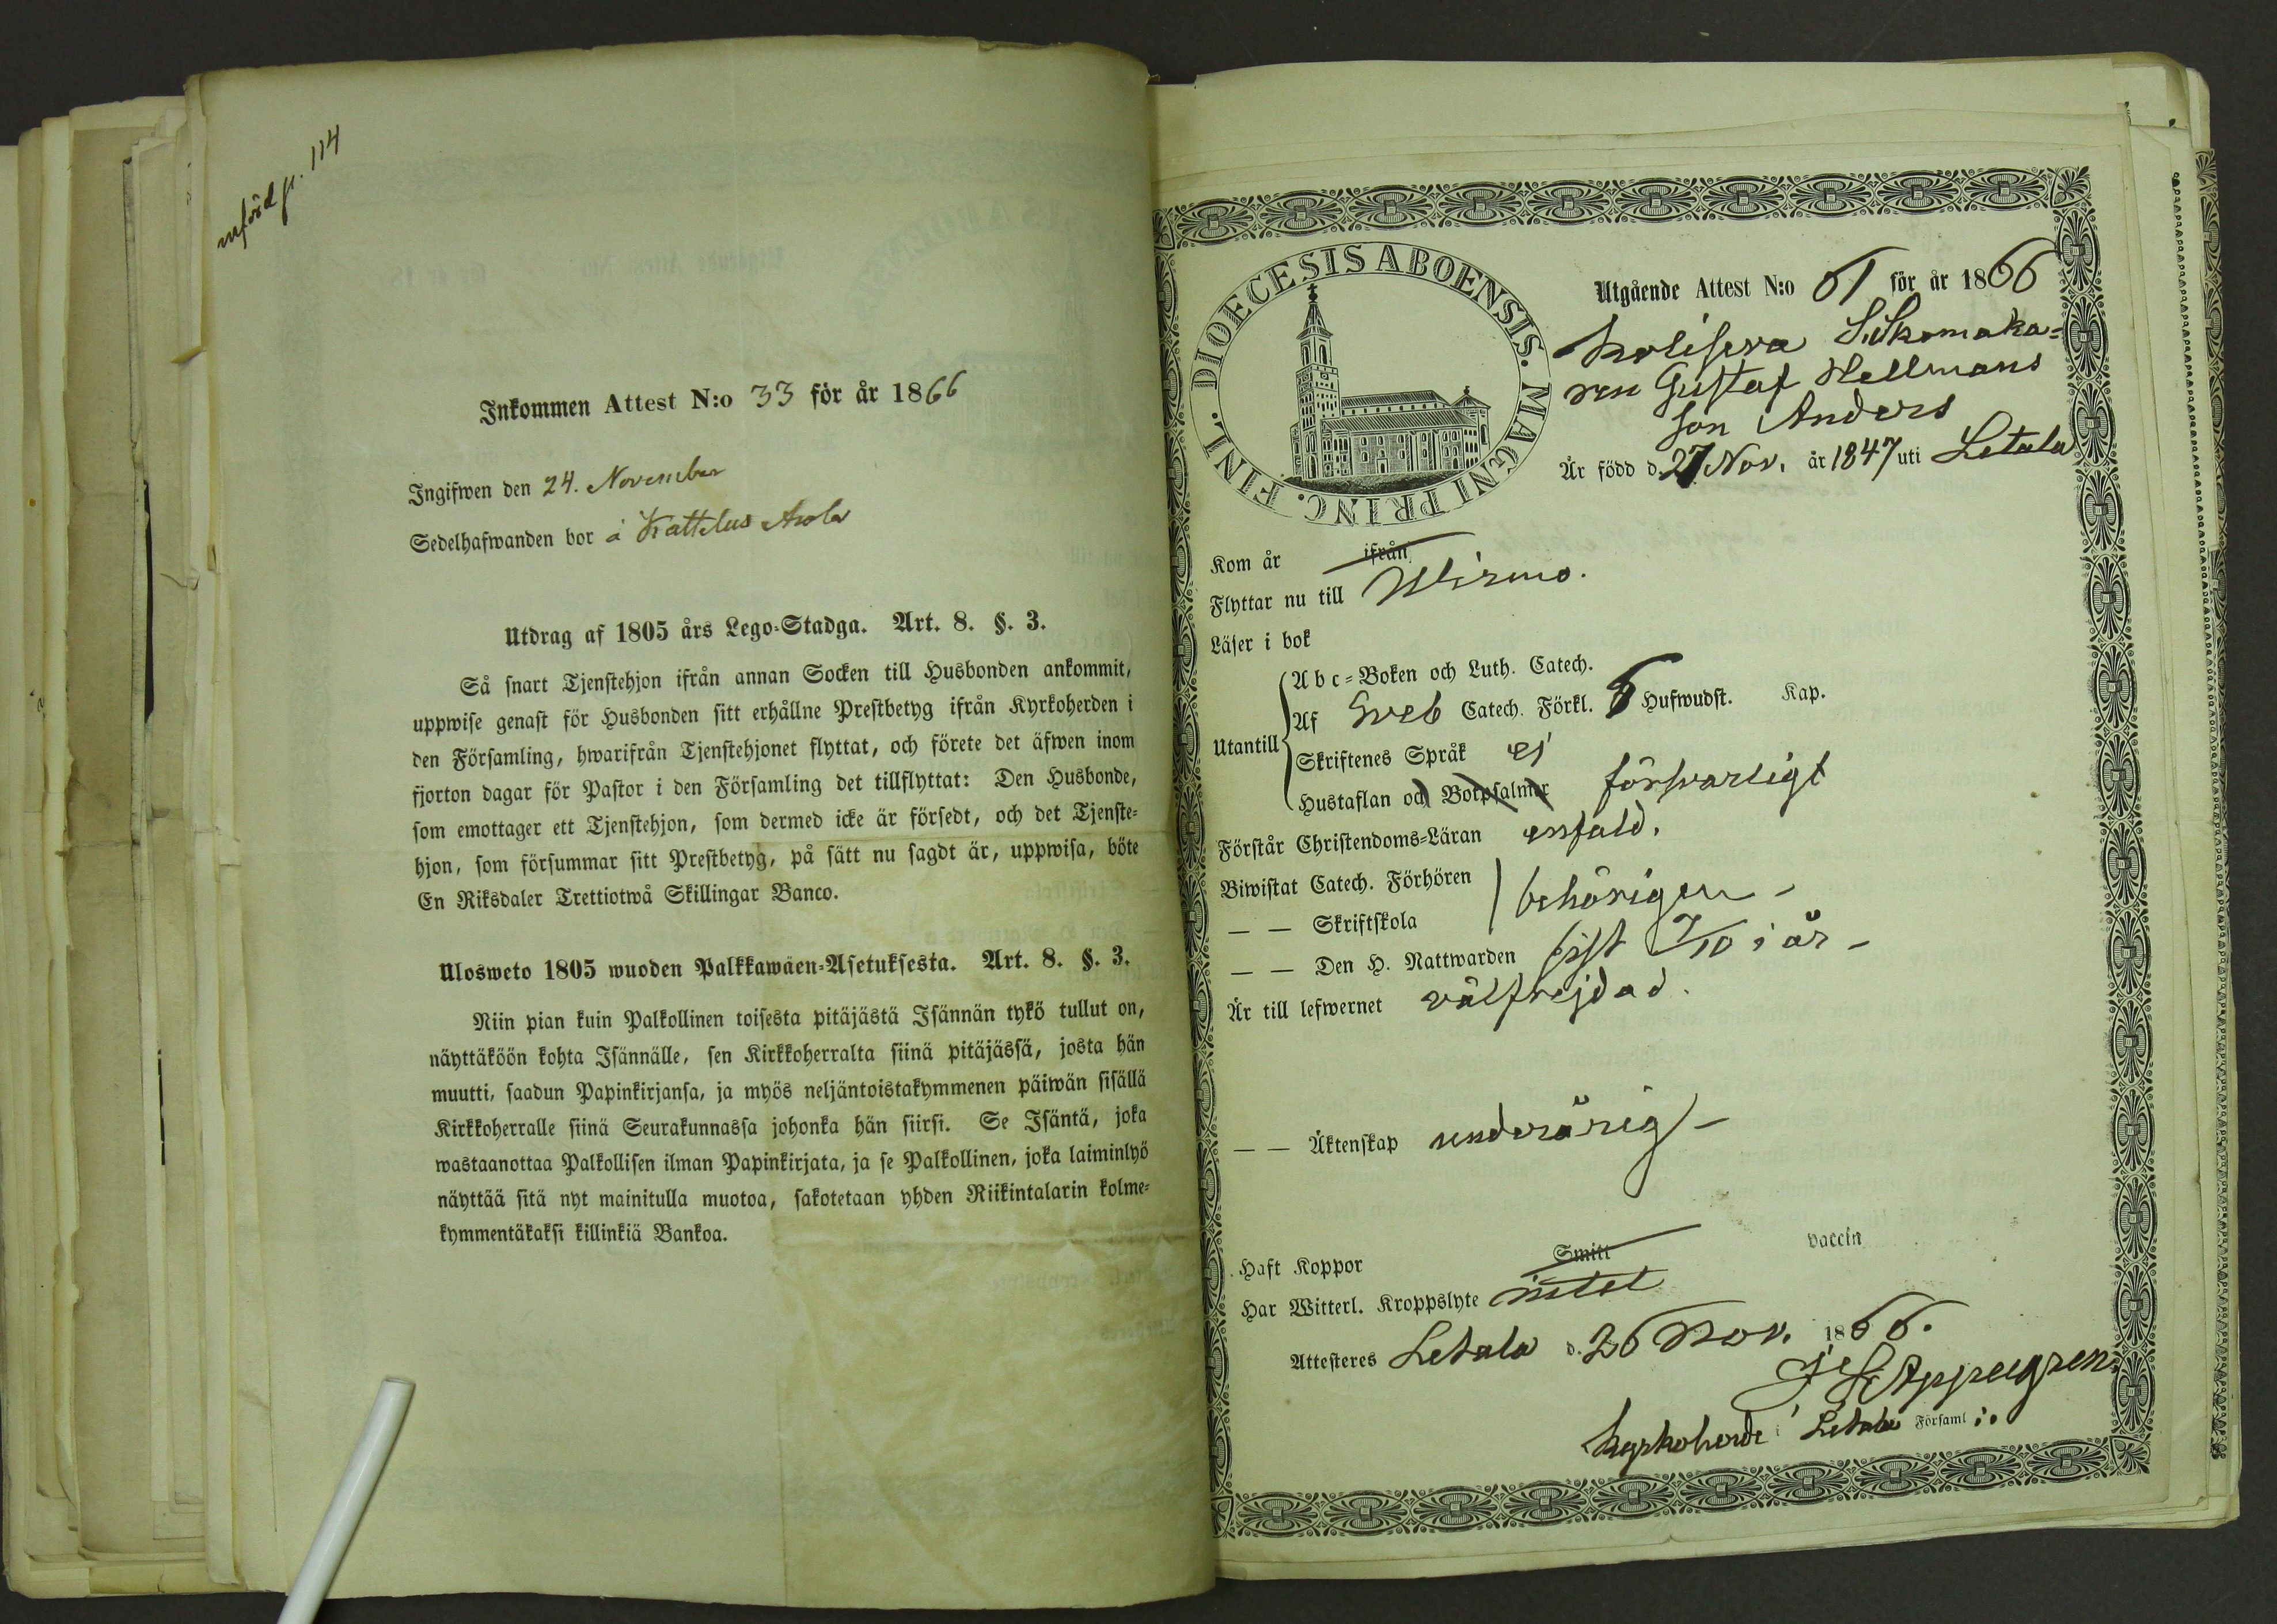 införd p. 114
Inkommen Attest N:o 33 för år 1866
Ingifwen den 24. November
Sedelhafwanden bor å Kattelus Arola
Utdrag af 1805 års Lego-Stadga. Art. 8. §. 3.
Så snart Tjenstehjon ifrån annan Socken till Husbonden ankommit,
uppwise genast för Husbonden sitt erhållne Prestbetyg ifrån Kyrkoherden i
den Församling, hwarifrån Tjenstehjonet flyttat, och förete det äfwen inom
fjorton dagar för Pastor i den Församling det tillflyttat: Den Husbonde,
som emottager ett Tjenstehjon, som dermed icke är försedt, och det Tjenste-
hjon, som försummar sitt Prestbetyg, på sätt nu sagdt är, uppwisa, böte
En Riksdaler Trettiotwå Skillingar Banco.
Ulosweto 1805 wuoden Palkkawäen-Asetuksesta. Art. 8. §. 3.
Niin pian kuin Palkollinen toisesta pitäjästä Isännän tykö tullut on,
näyttäköön kohta Isännälle, sen Kirkkoherralta siinä pitäjässä, josta hän
muutti, saadun Papinkirjansa, ja myös neljäntoistakymmenen päiwän sisällä
Kirkkoherralle siinä Seurakunnassa johonka hän siirsi. Se Isäntä, joka
wastaanottaa Palkollisen ilman Papinkirjata, ja se Palkollinen, joka laiminlyö
näyttää sitä nyt mainitulla muotoa, sakotetaan yhden Riikintalarin kolme-
kymmentäkaksi killinkiä Bankoa.
DIOECESIS ABOENSIS. MAGNI PRINC. FINL.
Utgående Attest N:o 61 för år 1866
Skomaka-
ren Gustaf Hellmans
son Anders
Är född d. 27 Nov. år 1847 uti Letala
Kom år ifrån
Flyttar nu till Wirmo.
Läser i bok
Utantill
Abc-Boken och Luth. Catech.
Af Sveb Catech. Förkl. 6 Hufwudst. Kap.
Skriftenes Språk ej
Hustaflan och Botpsalmer försvarligt
Förstår Christendoms-Läran enfald.
Biwistat Catech. Förhören
— — Skriftskola behörigen -
— — Den H. Nattwarden sist 7/10 i år -
Är till lefwernet välfrejdad.
— — Äktenskap underårig -
Haft Koppor Smitt vaccin
Har Witterl. Kroppslyte intet
Attesteres Letala d. 26 Nov. 1866.
Appelgren
Kyrkoherde i Letala Församl: